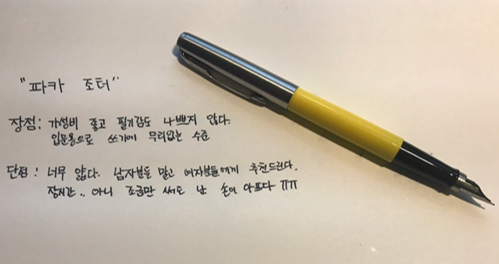 "파카 조터"
장점: 가성비 좋고 필기감도 나쁘지 않다.
입문용으로 쓰기에 무리없는 수준
단점: 너무 얇다. 남자분들 말고 여자분들에게 추천드린다.
잠시간.. 아니 조금만 써도 난 손이 아프다 ㅠㅠ